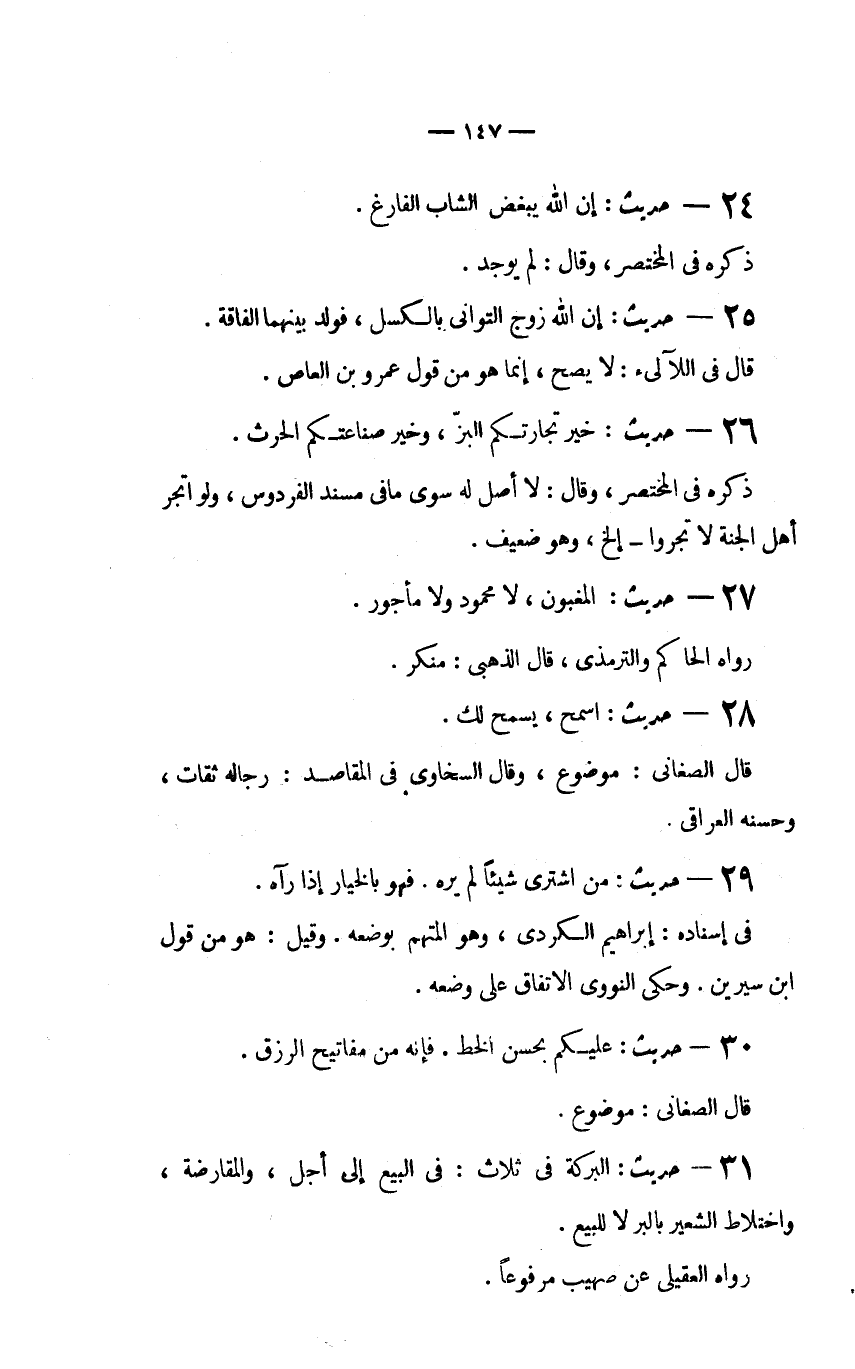 — ١٤٧ —
٢٤ — حديث : إن الله يبغض الشاب الفارغ .
ذكره فى المختصر ، وقال : لم يوجد .
٢٥ — حديث : إن الله زوج التوانى بالكسل ، فولد بينهما الفاقة .
قال فى اللآلىء : لا يصح ، إنما هو من قول عمرو بن العاص .
٢٦ — حديث : خير تجارتكم البزّ ، وخير صناعتكم الحرث .
ذكره فى المختصر ، وقال : لا أصل له سوى مافى مسند الفردوس ، ولو اتجر
أهل الجنة لا تجروا ـ إلخ ، وهو ضعيف .
٢٧ — حديث : المغبون ، لا محمود ولا مأجور .
رواه الحاكم والترمذى ، قال الذهبى : منكر .
٢٨ — حديث : اسمح ، يسمح لك .
قال الصغانى : موضوع ، وقال السخاوى فى المقاصد : رجاله ثقات ،
وحسنه العراقى .
٢٩ — حديث : من اشترى شيئاً لم يره . فهو بالخيار إذا رآه .
فى إسناده : إبراهيم الكردى ، وهو المتهم بوضعه . وقيل : هو من قول
ابن سيرين . وحكى النووى الاتفاق على وضعه .
٣٠ — حديث : عليكم بحسن الخط . فإنه من مفاتيح الرزق .
قال الصغانى : موضوع .
٣١ — حديث : البركة فى ثلاث : فى البيع إلى أجل ، والمقارضة ،
واختلاط الشعير بالبر لا للبيع .
رواه العقيلى عن صهيب مرفوعاً .